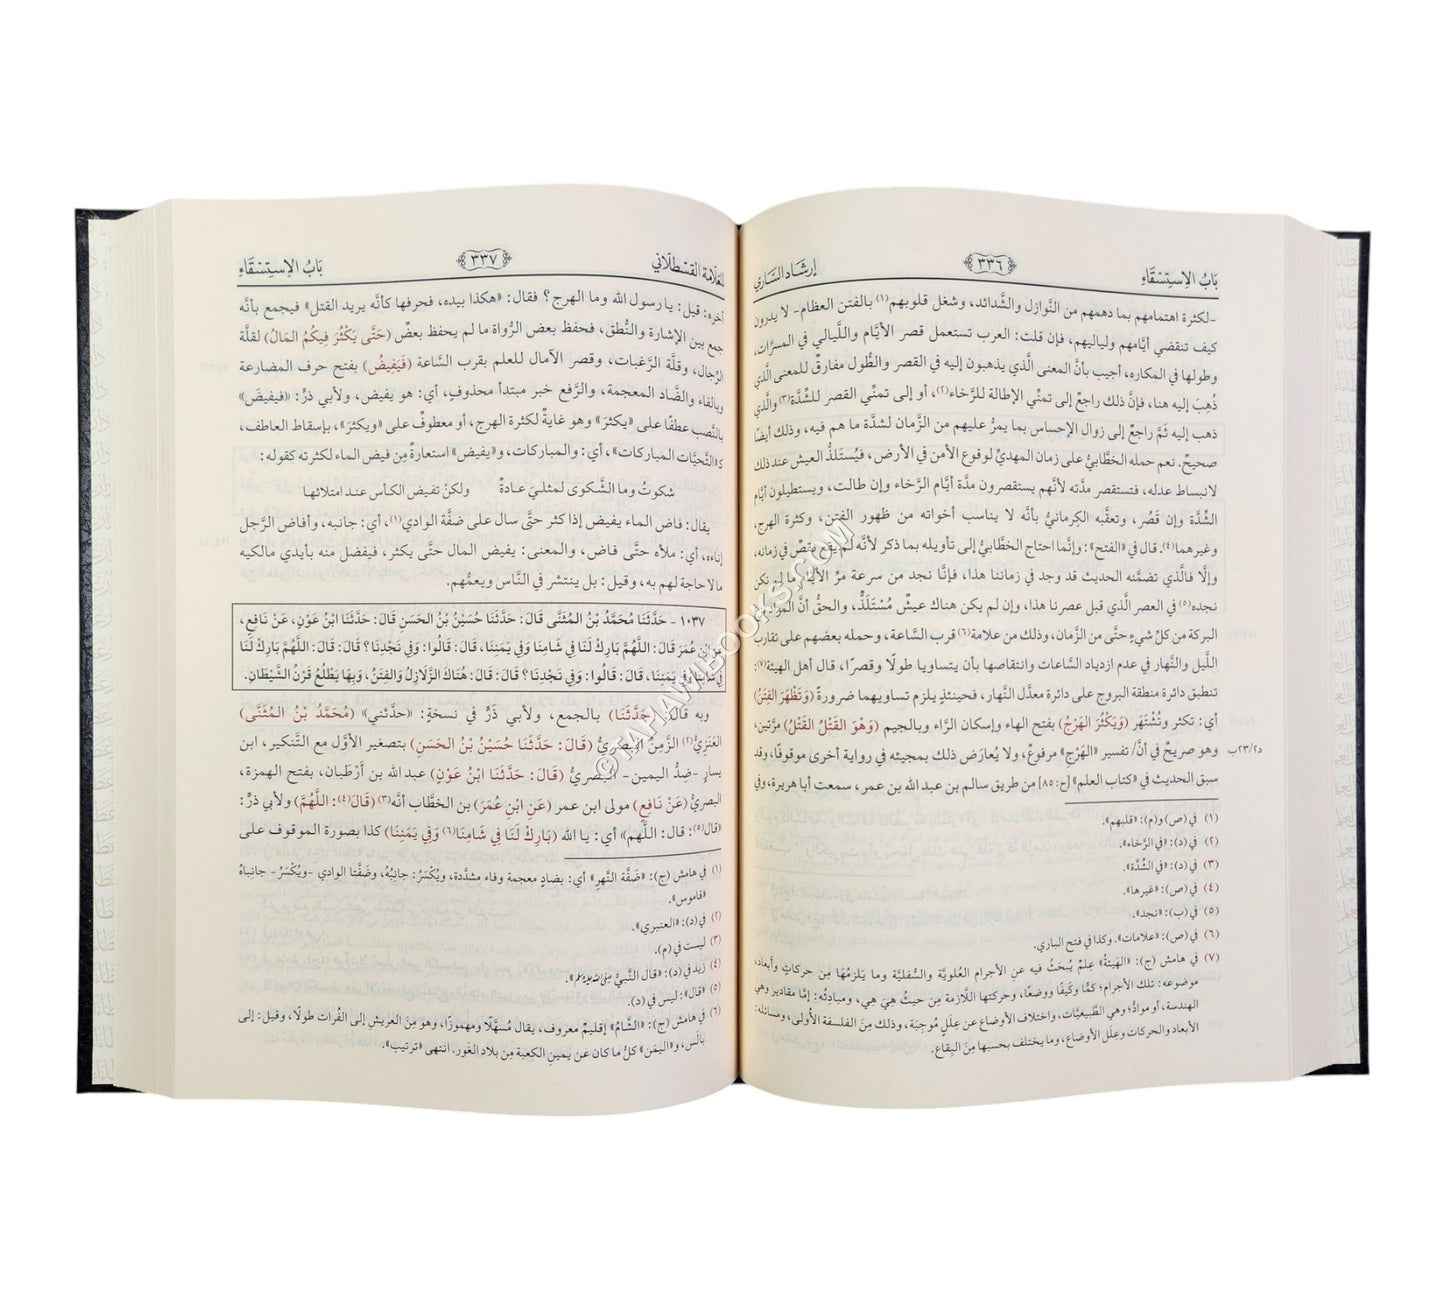 بَابُ الاِسْتِسْقَاءِ
٣٣٦
إرشاد السَّاري
-لكثرة اهتمامهم بما دهمهم من النَّوازل والشَّدائد، وشغل قلوبهم(١) بالفتن العظام- لا يدرون
كيف تنقضي أيَّامهم ولياليهم، فإن قلت: العرب تستعمل قصر الأيَّام واللَّيالي في المسرَّات،
وطولها في المكاره، أجيب بأنَّ المعنى الَّذي يذهبون إليه في القصر والطُّول مفارقٌ للمعنى الَّذي
ذُهِبَ إليه هنا، فإنَّ ذلك راجعٌ إلى تمنِّي الإطالة للرَّخاء(٢)، أو إلى تمنِّي القصر للشِّدَّة(٣) والَّذي
ذهب إليه ثَمَّ راجعٌ إلى زوال الإحساس بما يمرُّ عليهم من الزَّمان لشدة ما هم فيه، وذلك أيضًا
صحيحٌ. نعم حمله الخطَّابيُّ على زمان المهديِّ لوقوع الأمن في الأرض، فيُستَلذُّ العيش عند ذلك
لانبساط عدله، فتستقصر مدَّته لأنَّهم يستقصرون مدَّة أيَّام الرَّخاء وإن طالت، ويستطيلون أيَّام
الشِّدَّة وإن قَصُر، وتعقَّبه الكِرمانيُّ بأنَّه لا يناسب أخواته من ظهور الفتن، وكثرة الهرج،
وغيرهما(٤). قال في «الفتح»: وإنَّما احتاج الخطَّابيُّ إلى تأويله بما ذكر لأنَّه لم يقع نقصٌ في زمانه،
وإلَّا فالَّذي تضمَّنه الحديث قد وجد في زماننا هذا، فإنَّا نجد من سرعة مرِّ الأيَّام ما لم نكن
نجده(٥) في العصر الَّذي قبل عصرنا هذا، وإن لم يكن هناك عيشٌ مُسْتَلَذٌّ، والحقُّ أنَّ المراد نزع
البركة من كلِّ شيءٍ حتَّى من الزَّمان، وذلك من علامة(٦) قرب السَّاعة، وحمله بعضهم على تقارب
اللَّيل والنَّهار في عدم ازدياد السَّاعات وانتقاصها بأن يتساويا طولًا وقصرًا، قال أهل الهيئة(٧):
تنطبق دائرة منطقة البروج على دائرة معدَّل النَّهار، فحينئذٍ يلزم تساويهما ضرورةً (وَتَظْهَرَ الفِتَنُ)
أي: تكثر وتُشتَهَر (وَيَكْثُرَ الهَرْجُ) بفتح الهاء وإسكان الرَّاء وبالجيم (وَهُوَ القَتْلُ القَتْلُ) مرَّتين،
د٢/٢٣ب
وهو صريحٌ في أنَّ/ تفسير «الهَرْج» مرفوعٌ، ولا يُعارَض ذلك بمجيئه في رواية أخرى موقوفًا، وقد
سبق الحديث في «كتاب العلم» [ح:٨٥] من طريق سالم بن عبد الله بن عمر، سمعت أبا هريرة، وفي
(١) في (ص) و(م): «قلبهم».
(٢) في (د): «في الرَّخاء».
(٣) في (د): «في الشِّدَّة».
(٤) في (ص): «غيرها».
(٥) في (ب): «نجد».
(٦) في (ص): «علامات». وكذا في فتح الباري.
(٧) في هامش (ج): «الهَيئةُ» عِلمٌ يُبحَثُ فيه عن الأجرام العُلويَّة والسُّفليَّة وما يَلزمُهَا مِن حركاتٍ وأبعاد،
موضوعه: تلك الأجرام؛ كمًّا وكَيفًا ووضعًا، وحركتها اللَّازمة مِن حيثُ هِيَ هِي، ومبادِئُه: إمَّا مقادير وهي
الهندسة، أو موادُّ؛ وهي الطَّبيعيَّات، واختلاف الأوضاع عن عِلَلٍ مُوجِبَة، وذلك مِنَ الفلسفة الأُولى، ومسائله:
الأبعاد والحركات وعِلَل الأوضاع، وما يختلف بحسبها مِنَ البِقاع.
للعلَّامة القسطلَّاني
٣٣٧
بَابُ الاِسْتِسْقَاءِ
آخره: قيل: يا رسول الله وما الهرج؟ فقال: «هكذا بيده، فحرفها كأنَّه يريد القتل» فيجمع بأنَّه
جمع بين الإشارة والنُّطق، فحفظ بعض الرُّواة ما لم يحفظ بعضٌ (حَتَّى يَكْثُرَ فِيكُمُ المَالُ) لقلَّة
الرِّجال، وقلَّة الرَّغبات، وقصر الآمال للعلم بقرب السَّاعة (فَيَفِيضُ) بفتح حرف المضارعة
وبالفاء والضَّاد المعجمة، والرَّفع خبر مبتدأ محذوفٍ، أي: هو يفيض، ولأبي ذرٍّ: «فيفيضَ»
بالنَّصب عطفًا على «يكثرَ» وهو غايةٌ لكثرة الهرج، أو معطوفٌ على «ويكثرَ»، بإسقاط العاطف،
كـ«التَّحيَّات المباركات»، أي: والمباركات، و«يفيض» استعارةٌ مِن فيض الماء لكثرته كقوله:
شكوتُ وما الشَّكوى لمثليَ عـادةً ولكنْ تفيض الكأس عند امتلائها
يقال: فاض الماء يفيض إذا كثر حتَّى سال على ضفَّة الوادي(١)، أي: جانبه، وأفاض الرَّجل
إناءه، أي: ملأه حتَّى فاض، والمعنى: يفيض المال حتَّى يكثر، فيفضل منه بأيدي مالكيه
ما لا حاجة لهم به، وقيل: بل ينتشر في النَّاس ويعمُّهم.
١٠٣٧ - حَدَّثَنَا مُحَمَّدُ بْنُ المُثَنَّى قَالَ: حَدَّثَنَا حُسَيْنُ بْنُ الحَسَنِ قَالَ: حَدَّثَنَا ابْنُ عَوْنٍ، عَنْ نَافِعٍ،
عَنِ ابْنِ عُمَرَ قَالَ: اللَّهُمَّ بَارِكْ لَنَا فِي شَامِنَا وَفِي يَمَنِنَا، قَالَ: قَالُوا: وَفِي نَجْدِنَا؟ قَالَ: قَالَ: اللَّهُمَّ بَارِكْ لَنَا
فِي شَامِنَا وَفِي يَمَنِنَا، قَالَ: قَالُوا: وَفِي نَجْدِنَا؟ قَالَ: قَالَ: هُنَاكَ الزَّلَازِلُ وَالفِتَنُ، وَبِهَا يَطْلُعُ قَرْنُ الشَّيْطَانِ.
وبه قال: (حَدَّثَنَا) بالجمع، ولأبي ذَرٍّ في نسخةٍ: «حدَّثني» (مُحَمَّدُ بْنُ المُثَنَّى)
العَنَزِيُّ(٢) الزَّمِنُ البصريُّ (قَالَ: حَدَّثَنَا حُسَيْنُ بْنُ الحَسَنِ) بتصغير الأوَّل مع التَّنكير، ابن
يسارٍ -ضِدُّ اليمين- البصريُّ (قَالَ: حَدَّثَنَا ابْنُ عَوْنٍ) عبد الله بن أَرْطَبان، بفتح الهمزة،
البصريُّ (عَنْ نَافِعٍ) مولى ابن عمر (عَنِ ابْنِ عُمَرَ) بن الخطَّاب أنَّه(٣) (قَالَ(٤): اللَّهُمَّ) ولأبي ذرٍّ:
«قال(٥): قال: اللَّهم» أي: يا الله (بَارِكْ لَنَا فِي شَامِنَا(٦) وَفِي يَمَنِنَا) كذا بصورة الموقوف على
(١) في هامش (ج): «ضَفَّة النَّهرِ» أي: بضادٍ معجمة وفاء مشدَّدة، ويُكْسَرُ: جانِبُهُ، وضَفَّتا الوادي -ويُكْسَرُ- جانباهُ
«قاموس».
(٢) في (د): «العنبري».
(٣) ليست في (م).
(٤) زيد في (د): «قال النَّبيُّ صلى الله عليه وسلم».
(٥) «قال»: ليس في (د).
(٦) في هامش (ج): «الشَّامُ» إقليمٌ معروف، يقال مُسهَّلًا ومهموزًا، وهو مِنَ العريش إلى الفُرات طولًا، وقيل: إلى
بالَس، و«اليمَن» كلُّ ما كان عن يمينِ الكعبة مِن بلاد الغَور. انتهى «ترتيب».
©TAHAWIBOOKS.COM